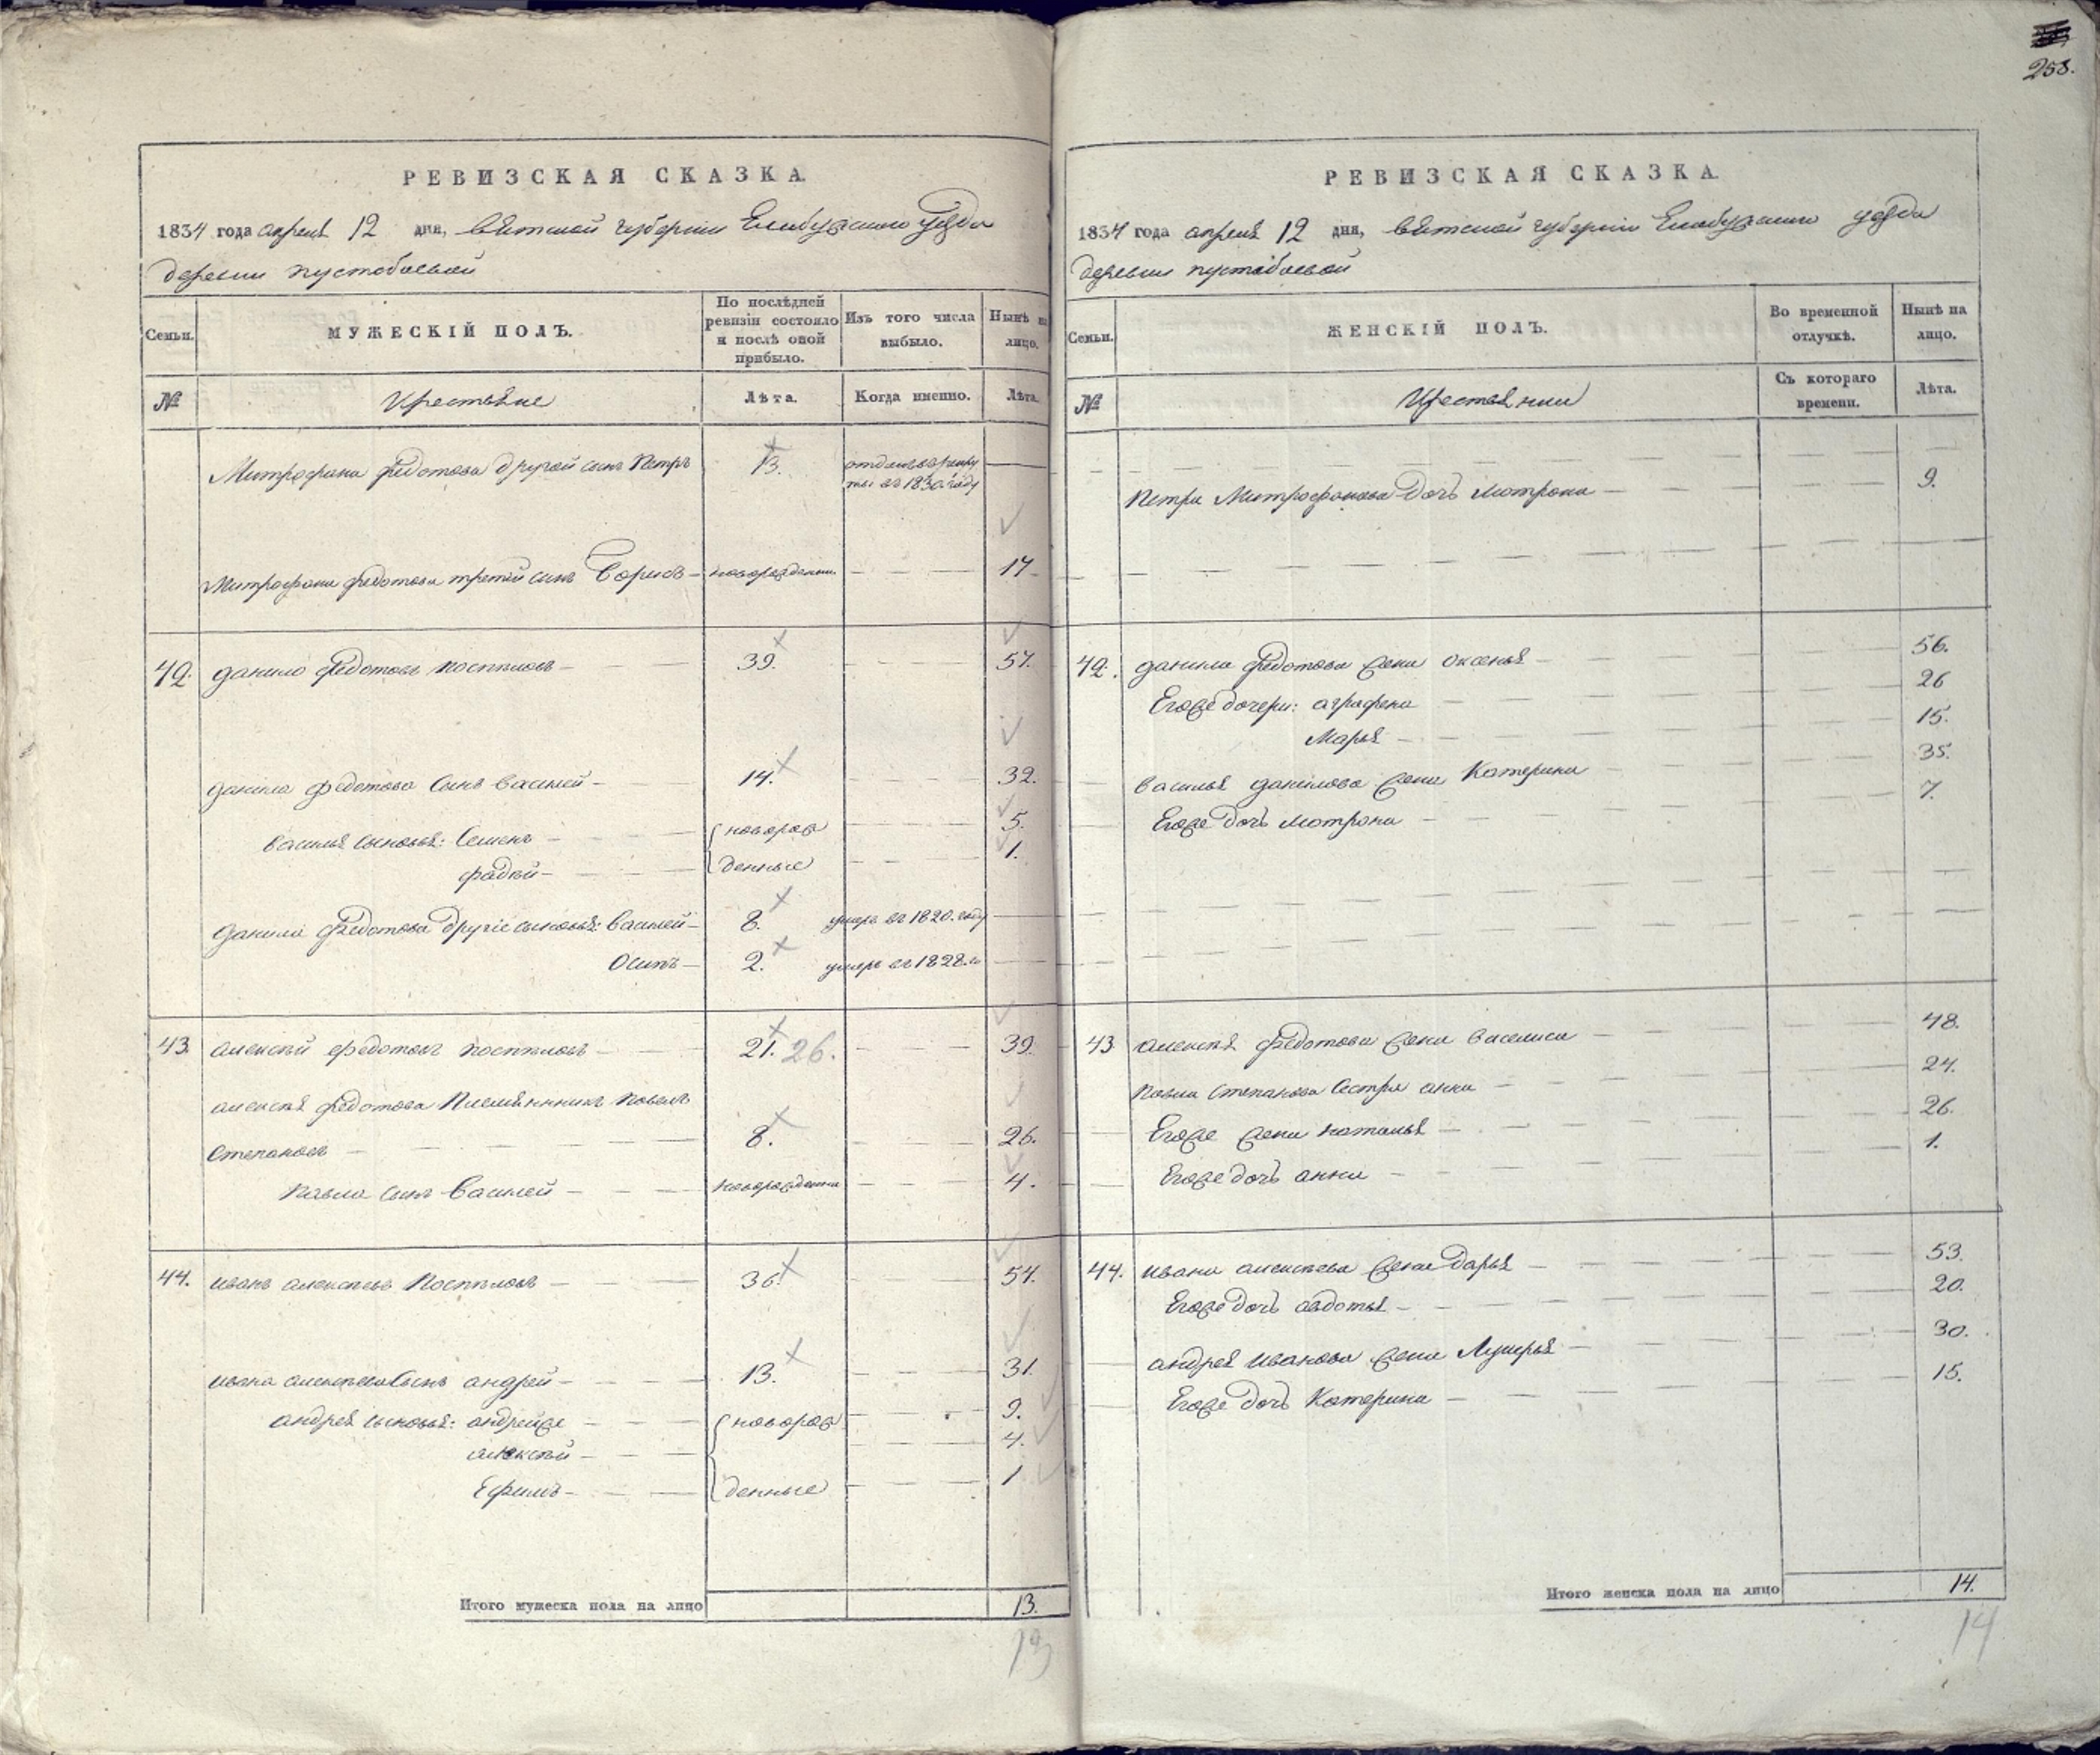 253.
РЕВИЗСКАЯ СКАЗКА.
1834 года апреля 12 дня, вятской губернии Елабужского уезда
деревни пустобаевой
Семьи.
МУЖЕСКІЙ ПОЛЪ.
По послѣдней ревизіи состояло и послѣ оной прибыло.
Изъ того числа выбыло.
Нынѣ на лицо.
№
Крестьяне
Лѣта.
Когда именно.
Лѣта.
Митрофана федотова другой сынъ Петръ 13. отданъ в рекруты въ 1830. году
Митрофана федотова третей сынъ Борисъ новорожденн. 17
42. данило федотовъ поспѣловъ 39. 57.
данила федотова сынъ василей 14. 32.
василья сыновья: семенъ новорож 5.
фадѣй денные 1.
данила федотова другіе сыновья: василей 8. умеръ въ 1820. году
Осипъ 2. умеръ въ 1828.
43. алексѣй федотовъ поспѣловъ 21. 26. 39.
алексѣя федотова племянникъ павелъ
степановъ 8. 26.
павла сынъ василей новорожденн 4.
44. иванъ алексѣевъ поспѣловъ 36. 54.
ивана алексѣева сынъ андрей 13. 31.
андрея сыновья: андрейже новорож 9.
алексѣй 4.
Ефимъ денные 1
Итого мужеска пола на лицо 13.
13
РЕВИЗСКАЯ СКАЗКА.
1834 года апреля 12 дня, вятской губерніи Елабужского уезда
деревни пустобаевой
Семьи.
ЖЕНСКІЙ ПОЛЪ.
Во временной отлучкѣ.
Нынѣ на лицо.
№
Крестьянки
Съ котораго времени.
Лѣта.
Петра Митрофанова дочь мотрона 9.
42. данила федотова жена оксенья 56.
Егоже дочери: аграфена 26
Марья 15.
василья данилова жена Катерина 35.
Егоже дочь мотрона 7.
43 алексѣя федотова жена василиса 48.
павла степанова сестра анна 24.
Егоже жена наталья 26.
Егоже дочь анна 1.
44. ивана алексѣева жена дарья 53.
Егоже дочь авдотья 20.
андрея иванова жена Лукерья 30.
Егоже дочь Катерина 15.
Итого женска пола на лицо 14.
14